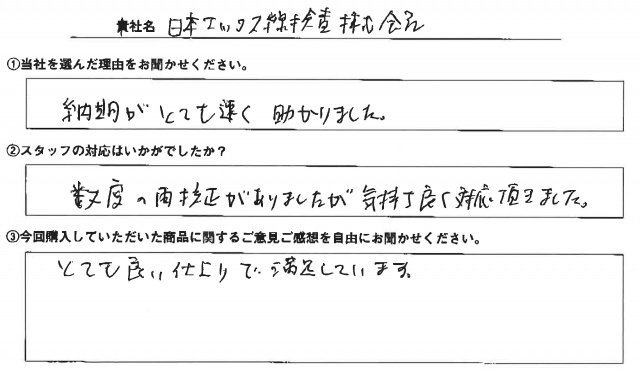 貴社名 日本エックス線検査株式会社
①当社を選んだ理由をお聞かせください。
納期がとても速く 助かりました。
②スタッフの対応はいかがでしたか？
数度の再校正がありましたが気持ち良く対応頂きました。
③今回購入していただいた商品に関するご意見ご感想を自由にお聞かせください。
とても良い仕上りで満足しています。